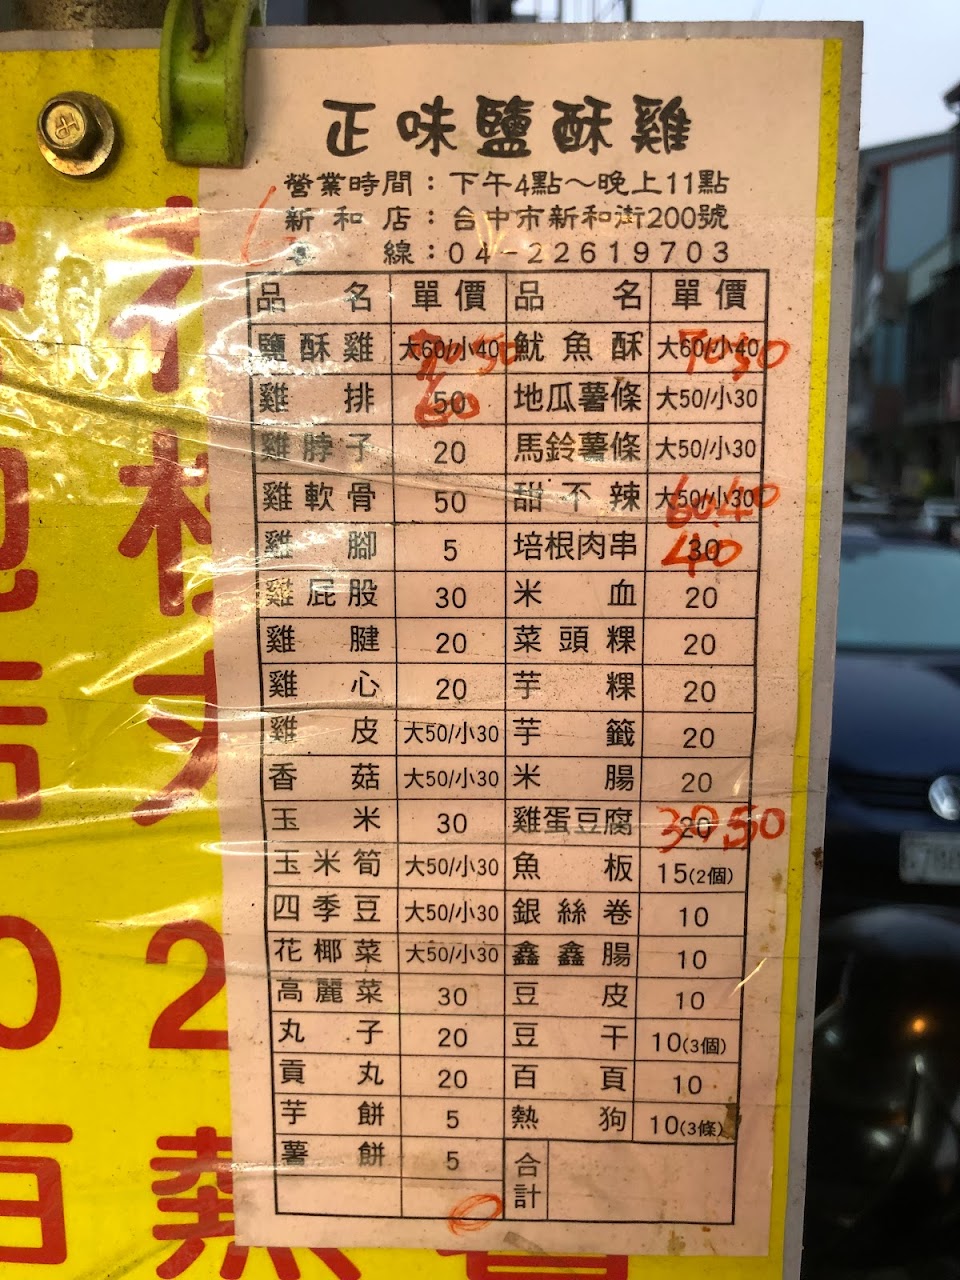 正味鹽酥雞
營業時間：下午4點～晚上11點
新和店：台中市新和街200號
線：04-22619703
品名 單價 品名 單價
鹽酥雞 大60/小40 50 魷魚酥 大60/小40 70 50
雞排 50 60 地瓜薯條 大50/小30
雞脖子 20 馬鈴薯條 大50/小30
雞軟骨 50 甜不辣 大50/小30 60 40
雞腳 5 培根肉串 30 40
雞屁股 30 米血 20
雞腱 20 菜頭粿 20
雞心 20 芋粿 20
雞皮 大50/小30 芋籤 20
香菇 大50/小30 米腸 20
玉米 30 雞蛋豆腐 20 30 50
玉米筍 大50/小30 魚板 15(2個)
四季豆 大50/小30 銀絲卷 10
花椰菜 大50/小30 鑫鑫腸 10
高麗菜 30 豆皮 10
丸子 20 豆干 10(3個)
貢丸 20 百頁 10
芋餅 5 熱狗 10(3條)
薯餅 5 合計
2
熱